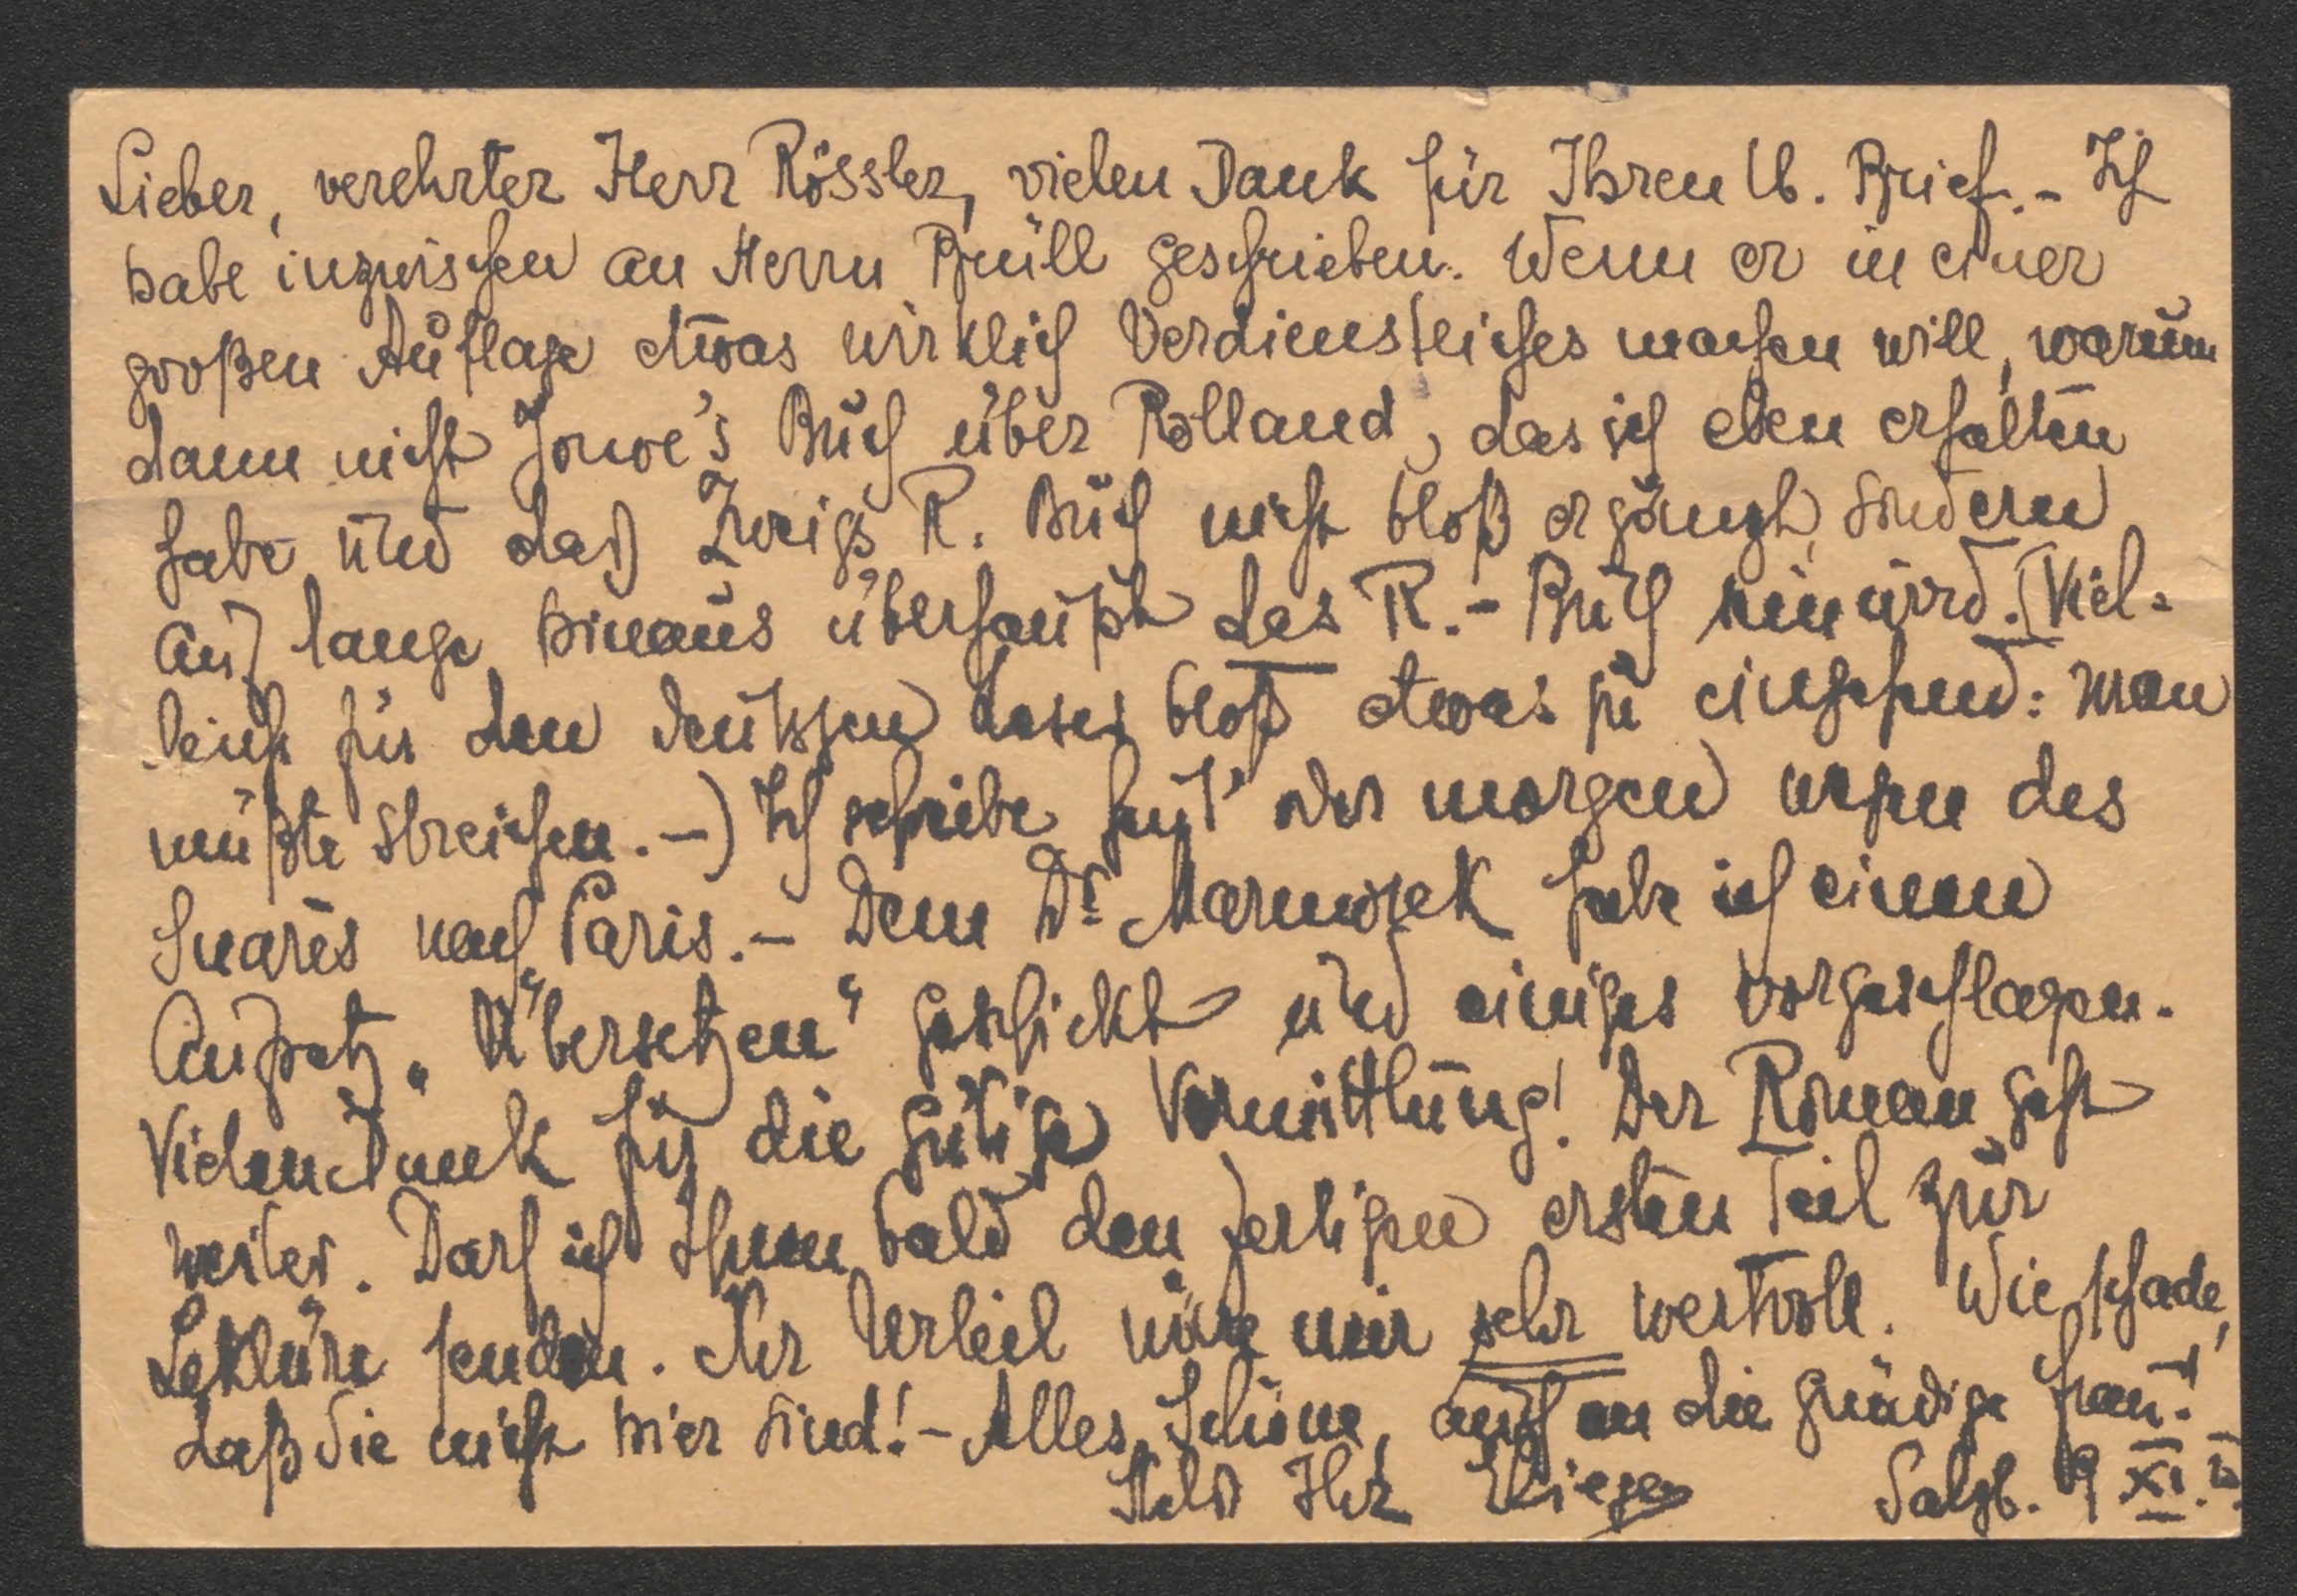 Lieber, verehrter Herr Rössler, vielen Dank für Ihren lb. Brief. – Ich
habe inzwischen an Herrn Brüll geschrieben. Wenn er in einer
großen Auflage etwas wirklich Verdienstliches machen will, warum
dann nicht Jouve's Buch über Rolland, das ich eben erhalten
habe und das Zweigs R. Buch nicht bloß ergänzt, sondern
auf lange hinaus überhaupt das R.-Buch sein wird. (Viel-
leicht für den deutschen Leser bloß etwas zu eingehend: man
müßte streichen. –) Ich schreibe heut' oder morgen wegen des
Suarès nach Paris. – Dem Dr. Marmorek habe ich einen
Aufsatz „Übersetzen“ geschickt und einiges vorgeschlagen.
Vielen Dank für die gütige Vermittlung! Der Roman geht
weiter. Darf ich Ihnen bald den fertigen ersten Teil zur
Lektüre senden. Ihr Urteil wäre mir sehr wertvoll. Wie schade,
daß Sie nicht hier sind! – Alles Schöne, auch an die gnädige Frau!
Stets Ihr Salzb. 9 XI.